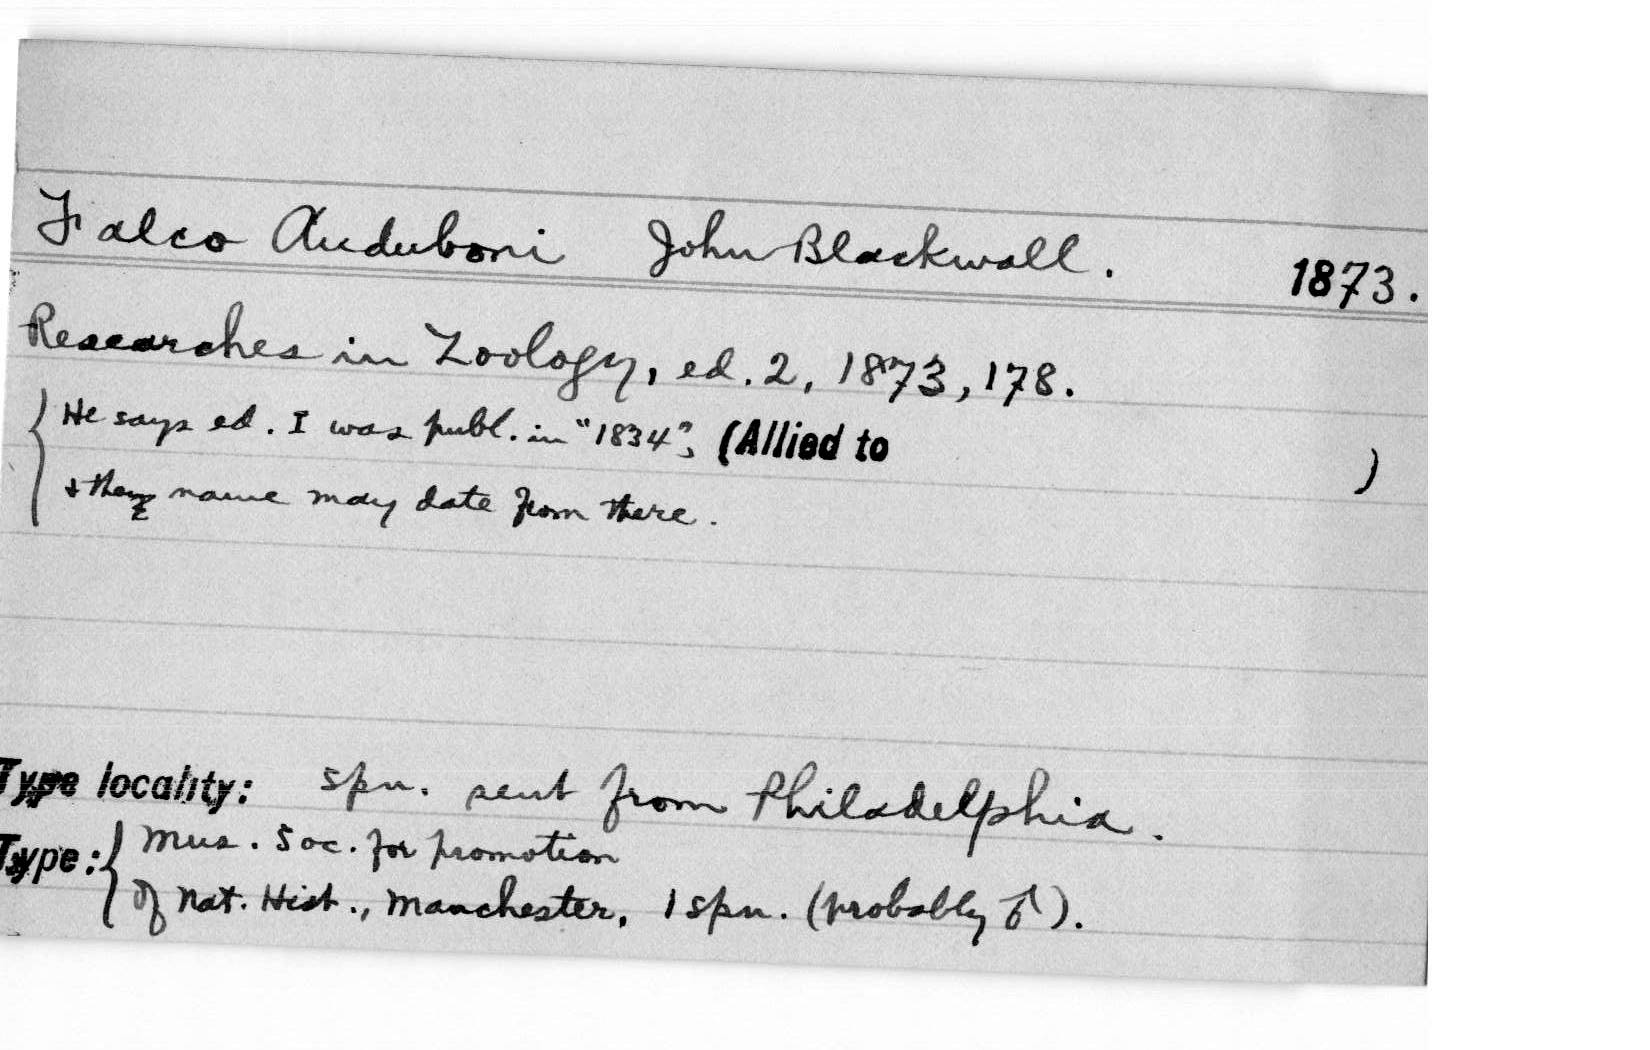 Falco Auduboni John Blackwall. 1873.
Researches in Zoology, ed. 2, 1873, 178.
He says ed. I was publ. in "1834", (Allied to )
& the name may date from there.
Type locality: spn. sent from Philadelphia.
Type: Mus. Soc. for promotion
of Nat. Hist., Manchester, 1 spn. (probably ♂).